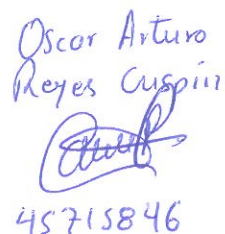 Oscar Arturo
Reyes Crispín
45715846